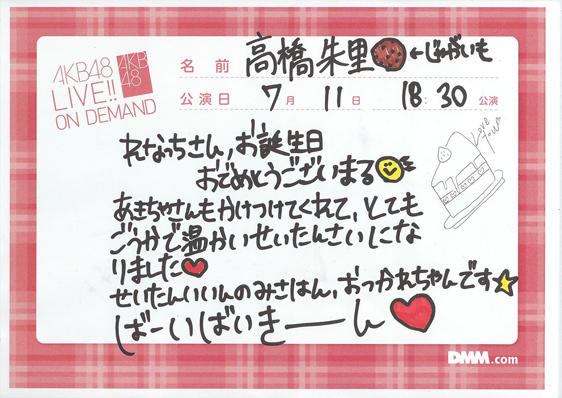 AKB48
LIVE!!
ON DEMAND
AKB
48
名前 高橋朱里 ←じゃがいも
公演日 7月 11日 18:30 公演
れなっちさん,お誕生日
おでめとうございまる
LOVE
you
あきちゃさんもかけつけてくれて,とても
ごうかで温かいせいたんさいにな
りました
せいたんいいんのみさはん,おつかれちゃんです
ばーいばいきーーん
DMM.com